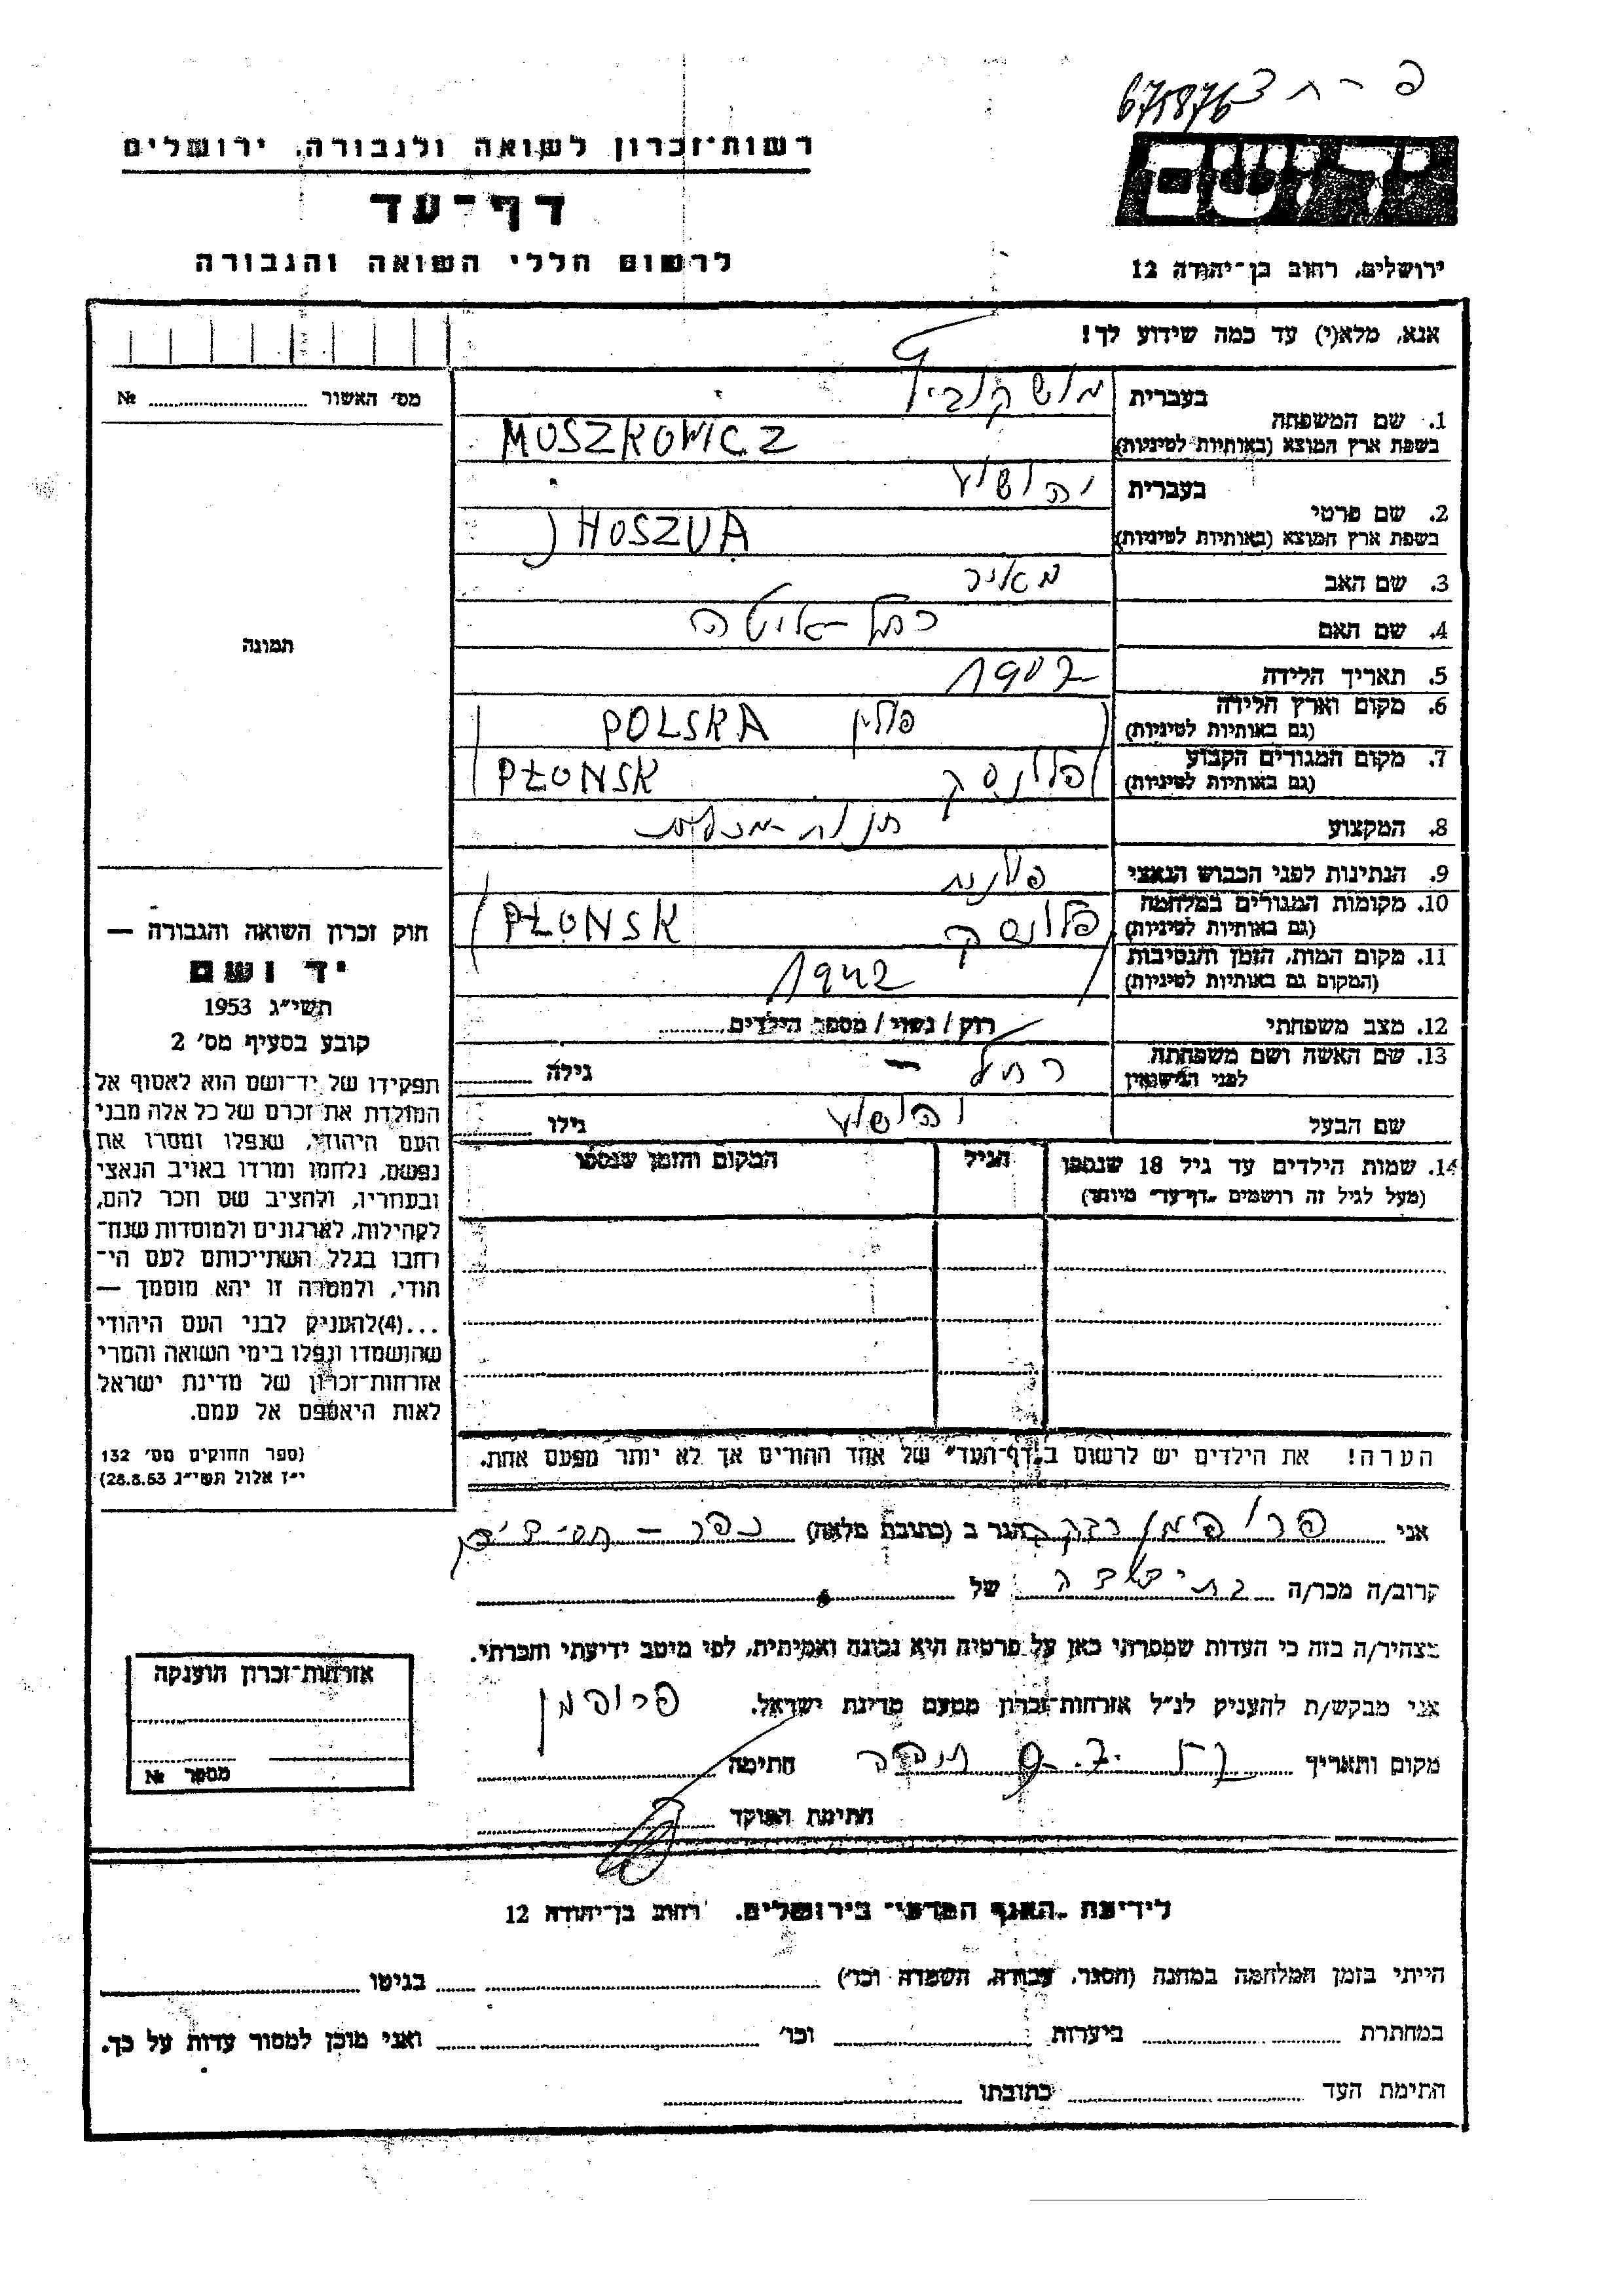 פ - ח 3
675876
רשות־זכרון לשואה ולגבורה, ירושלים
יד ושם
דף־עד
לרשום חללי השואה והגבורה
ירושלים, רחוב בן־יהודה 12
אנא, מלא(י) עד כמה שידוע לך!
מס' האשור № 
בעברית מושקוביץ
1. שם המשפחה
בשפת ארץ המוצא (באותיות לטיניות) MOSZKOWICZ
בעברית יהושוע
2. שם פרטי
בשפת ארץ המוצא (באותיות לטיניות) JHOSZUA
3. שם האב מאיר
4. שם האם רחל-איטה
תמונה
5. תאריך הלידה 1907
6. מקום וארץ הלידה פולין POLSKA
(גם באותיות לטיניות)
7. מקום המגורים הקבוע פלונסק PŁONSK
(גם באותיות לטיניות)
8. המקצוע
9. הנתינות לפני הכבוש הנאצי פולנית
10. מקומות המגורים במלחמה פלונסק PŁONSK
(גם באותיות לטיניות)
11. מקום המות, הזמן והנסיבות 1942
(המקום גם באותיות לטיניות)
12. מצב משפחתי רוק / נשוי / מספר הילדים
13. שם האשה ושם משפחתה רחל - גילה
לפני הנישואין
שם הבעל יהושוע גילו
14. שמות הילדים עד גיל 18 שנספו הגיל המקום והזמן שנספו
(מעל לגיל זה רושמים „דף־עד" מיוחד)
הערה! את הילדים יש לרשום ב„דף־העד" של אחד ההורים אך לא יותר מפעם אחת.
חוק זכרון השואה והגבורה —
יד ושם
תשי"ג 1953
קובע בסעיף מס' 2
תפקידו של יד־ושם הוא לאסוף אל
המולדת את זכרם של כל אלה מבני
העם היהודי, שנפלו ומסרו את
נפשם, נלחמו ומרדו באויב הנאצי
ובעוזריו, ולהציב שם וזכר להם,
לקהילות, לארגונים ולמוסדות שנח־
רחבו בגלל השתייכותם לעם הי־
הודי, ולמטרה זו יהא מוסמך —
...(4)להעניק לבני העם היהודי
שהושמדו ונפלו בימי השואה והמרי
אזרחות־זכרון של מדינת ישראל
לאות היאספם אל עמם.
(ספר החוקים מס' 132
י"ז אלול תשי"ג 28.8.53)
אני פרופמן רבקה הגר ב (כתובת מלאה) כפר -
קרוב/ה מכר/ה של
מצהיר/ה בזה כי העדות שמסרתי כאן על פרטיה היא נכונה ואמיתית, לפי מיטב ידיעתי והכרתי.
אני מבקש/ת להעניק לנ"ל אזרחות־זכרון מטעם מדינת ישראל. פרופמן
מקום ותאריך חתימה
חתימת הפוקד
אזרחות־זכרון הוענקה
מספר №
לידיעת „האגף המדעי" בירושלים, רחוב בן־יהודה 12
הייתי בזמן המלחמה במחנה (הסגר, עבודה, השמדה וכו') בגיטו
במחתרת ביערות וכו' ואני מוכן למסור עדות על כך.
חתימת העד כתובתו